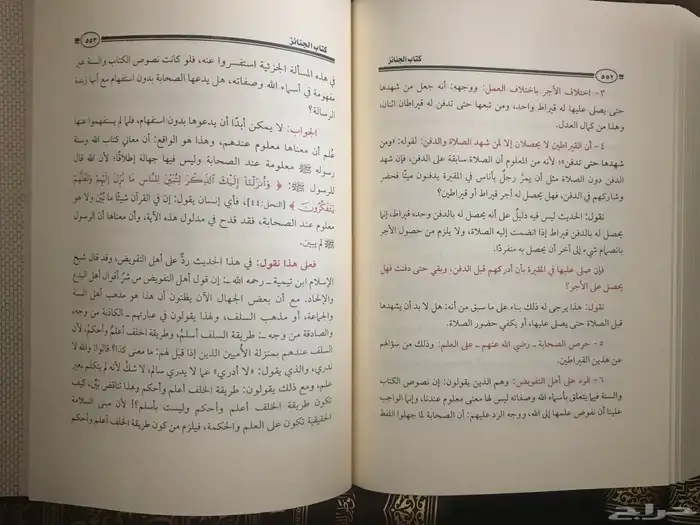 ٥٥٢
كتاب الجنائز
٣- اختلاف الأجر باختلاف العمل: ووجهه: أنه جعل من شهدها
حتى يصلى عليها له قيراط واحد، ومن تبعها حتى تدفن له قيراطان اثنان،
وهذا من كمال العدل.
٤- أن القيراطين لا يحصلان إلا لمن شهد الصلاة والدفن: لقوله: «ومن
شهدها حتى تدفن»؛ لأنه من المعلوم أن الصلاة سابقة على الدفن، فإن شهد
الدفن دون الصلاة مثل أن يمرَّ رجلٌ بأناس في المقبرة يدفنون ميتًا فحضر
وشاركهم في الدفن، فهل يحصل له أجر قيراط أو قيراطين؟
نقول: الحديث ليس فيه دليلٌ على أنه يحصل له بالدفن وحده قيراط، إنما
يحصل له بالدفن قيراط إذا انضمت إليه الصلاة، ولا يلزم من حصول الأجر
بانضمام شيء إلى آخر أن يحصل به منفردًا.
فإن صلى عليها في المقبرة بأن أدركهم قبل الدفن، وبقي حتى دفنت فهل
يحصل على الأجر؟
نقول: هذا يرجى له ذلك بناء على ما سبق من أنه: هل لا بد أن يشهدها
قبل الصلاة حتى يصلى عليها، أو يكفي حضور الصلاة.
٥- حرص الصحابة - رضي الله عنهم - على العلم: وذلك من سؤالهم
عن هذين القيراطين.
٦- الرد على أهل التفويض: وهم الذين يقولون: إن نصوص الكتاب
والسنة فيما يتعلق بأسماء الله وصفاته ليس لها معنى معلوم عندنا، وإنما الواجب
علينا أن نفوض علمها إلى الله، ووجه الرد عليهم: أن الصحابة لما جهلوا اللفظ
كتاب الجنائز
٥٥٣
في هذه المسألة الجزئية استفسروا عنه، فلو كانت نصوص الكتاب والسنة غير
مفهومة في أسماء الله وصفاته، هل يدعها الصحابة بدون استفهام مع أنها زبدة
الرسالة؟
الجواب: لا يمكن أبدًا أن يدعوها بدون استفهام، فلما لم يستفهموا عنها
عُلم أن معناها معلوم عندهم، وهذا هو الواقع: أن معاني كتاب الله وسنة
رسوله ﷺ معلومة عند الصحابة وليس فيها جهالة إطلاقًا؛ لأن الله قال
للرسول ﷺ: ﴿ وَأَنزَلْنَا إِلَيْكَ الذِّكْرَ لِتُبَيِّنَ لِلنَّاسِ مَا نُزِّلَ إِلَيْهِمْ وَلَعَلَّهُمْ
يَتَفَكَّرُونَ ﴾ [النحل:٤٤]، فأي إنسان يقول: إن في القرآن شيئًا ما بُيِّن ولا هو
معلوم عند الصحابة، فقد قدح في مدلول هذه الآية، وأن معناها أن الرسول
ﷺ لم يبين.
فعلى هذا نقول: في هذا الحديث ردٌّ على أهل التفويض، وقد قال شيخ
الإسلام ابن تيمية - رحمه الله -: إن قول أهل التفويض من شرِّ أقوال أهل البدع
والإلحاد. مع أن بعض الجهال الآن يظنون أن هذا هو مذهب أهل السنة
والجماعة، أو مذهب السلف، ولهذا يقولون في عبارتهم - الكاذبة من وجه،
والصادقة من وجه -: طريقة السلف أسلمُ، وطريقة الخلف أعلمُ وأحكمُ، لأن
السلف عندهم بمنزلة الأميين الذين إذا قيل لهم: ما معنى كذا؟ قالوا: والله لا
ندري، والذي يقول: «لا أدري» عما لا يدري سالم، لا شكَّ لأنه لم يتكلم بغير
علم، ومع ذلك يقولون: طريقة الخلف أعلم وأحكم وهذا تناقض بَيِّن، كيف
تكون طريقة الخلف أعلم وأحكم وليست بأسلم؟! لأن مبنى السلامة
الحقيقية تكون على العلم والحكمة، فيلزم من كون طريقة الخلف أعلم وأحكم
حراج